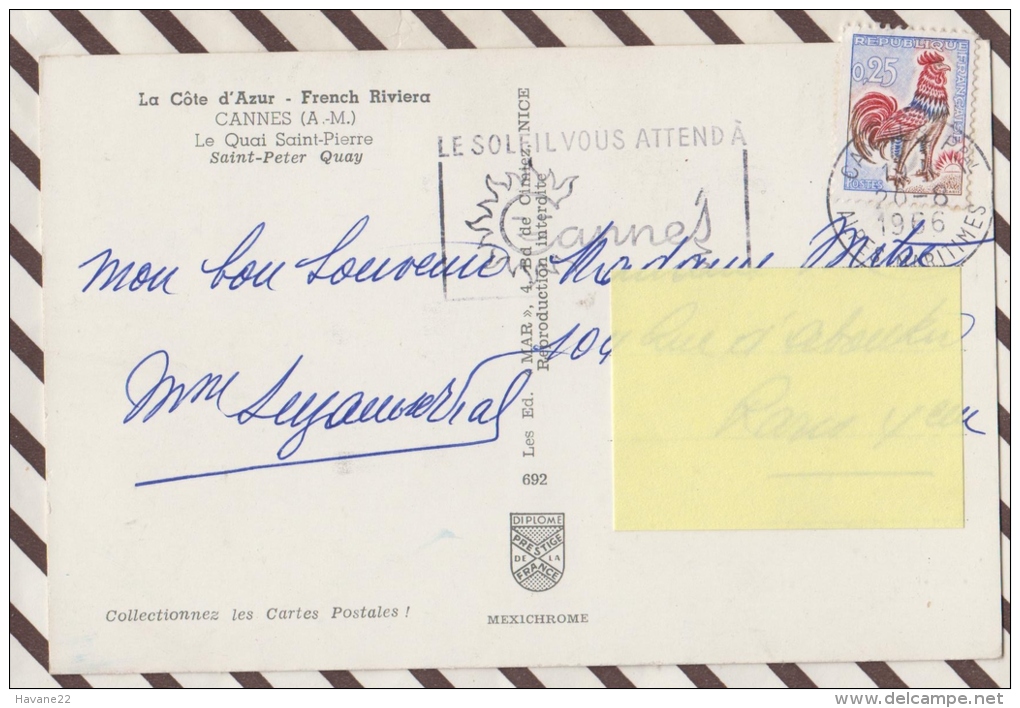 La Côte d'Azur - French Riviera
CANNES (A.-M.)
Le Quai Saint-Pierre
Saint-Peter Quay
LE SOLEIL VOUS ATTEND À
Cannes
REPUBLIQUE FRANÇAISE
0,25
POSTES
1966
ALPES MARITIMES
mon bon Souvenir
Mme
Madame
104
692 Les Ed. « MAR », 4, Bd de Cimiez, NICE
Reproduction interdite
DIPLOME
PRESTIGE
DE LA
FRANCE
Collectionnez les Cartes Postales !
MEXICHROME
Havane22
delcampe.net